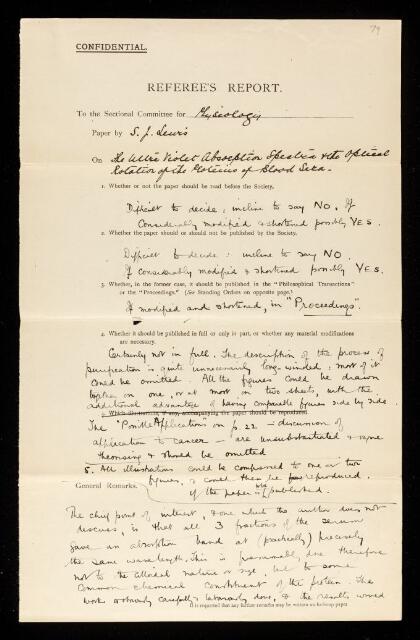 79
CONFIDENTIAL.
REFEREE'S REPORT.
To the Sectional Committee for Physiology
Paper by S. J. Lewis
On The Ultra Violet Absorption Spectra & the Optical
Rotation of the Proteins of Blood Sera.
1. Whether or not the paper should be read before the Society.
Difficult to decide: incline to say NO. If
considerably modified & shortened possibly YES.
2. Whether the paper should or should not be published by the Society.
Difficult to decide: incline to say NO.
If considerably modified & shortened possibly YES.
3. Whether, in the former case, it should be published in the "Philosophical Transactions"
or the "Proceedings." (See Standing Orders on opposite page.)
If modified and shortened, in "Proceedings".
2. Whether it should be published in full or only in part, or whether any material modifications
are necessary.
Certainly not in full. The description of the process of
purification is quite unnecessarily long-winded: most of it
could be omitted. All the figures could be drawn
together on one, or at most on two sheets, with the
additional advantage of having comparable figures side by side.
5. Which illustrations, if any, accompanying the paper should be reproduced
The "Possible Applications" on p. 22 — discussion of
application to cancer — are unsubstantiated & vague
theorising & should be omitted
5. All illustrations could be compressed to one or two
figures, & could then be reproduced.
if the paper published.
General Remarks.
The chief point of interest, & one which the author does not
discuss, is that all 3 fractions of the serum
gave an absorption band at (practically) precisely
the same wavelength. This is presumably due therefore
not to the colloidal nature or size, but to some
common chemical constituent of the protein. The
work is obviously carefully & laboriously done, & the results would
It is requested that any further remarks may be written on foolscap paper